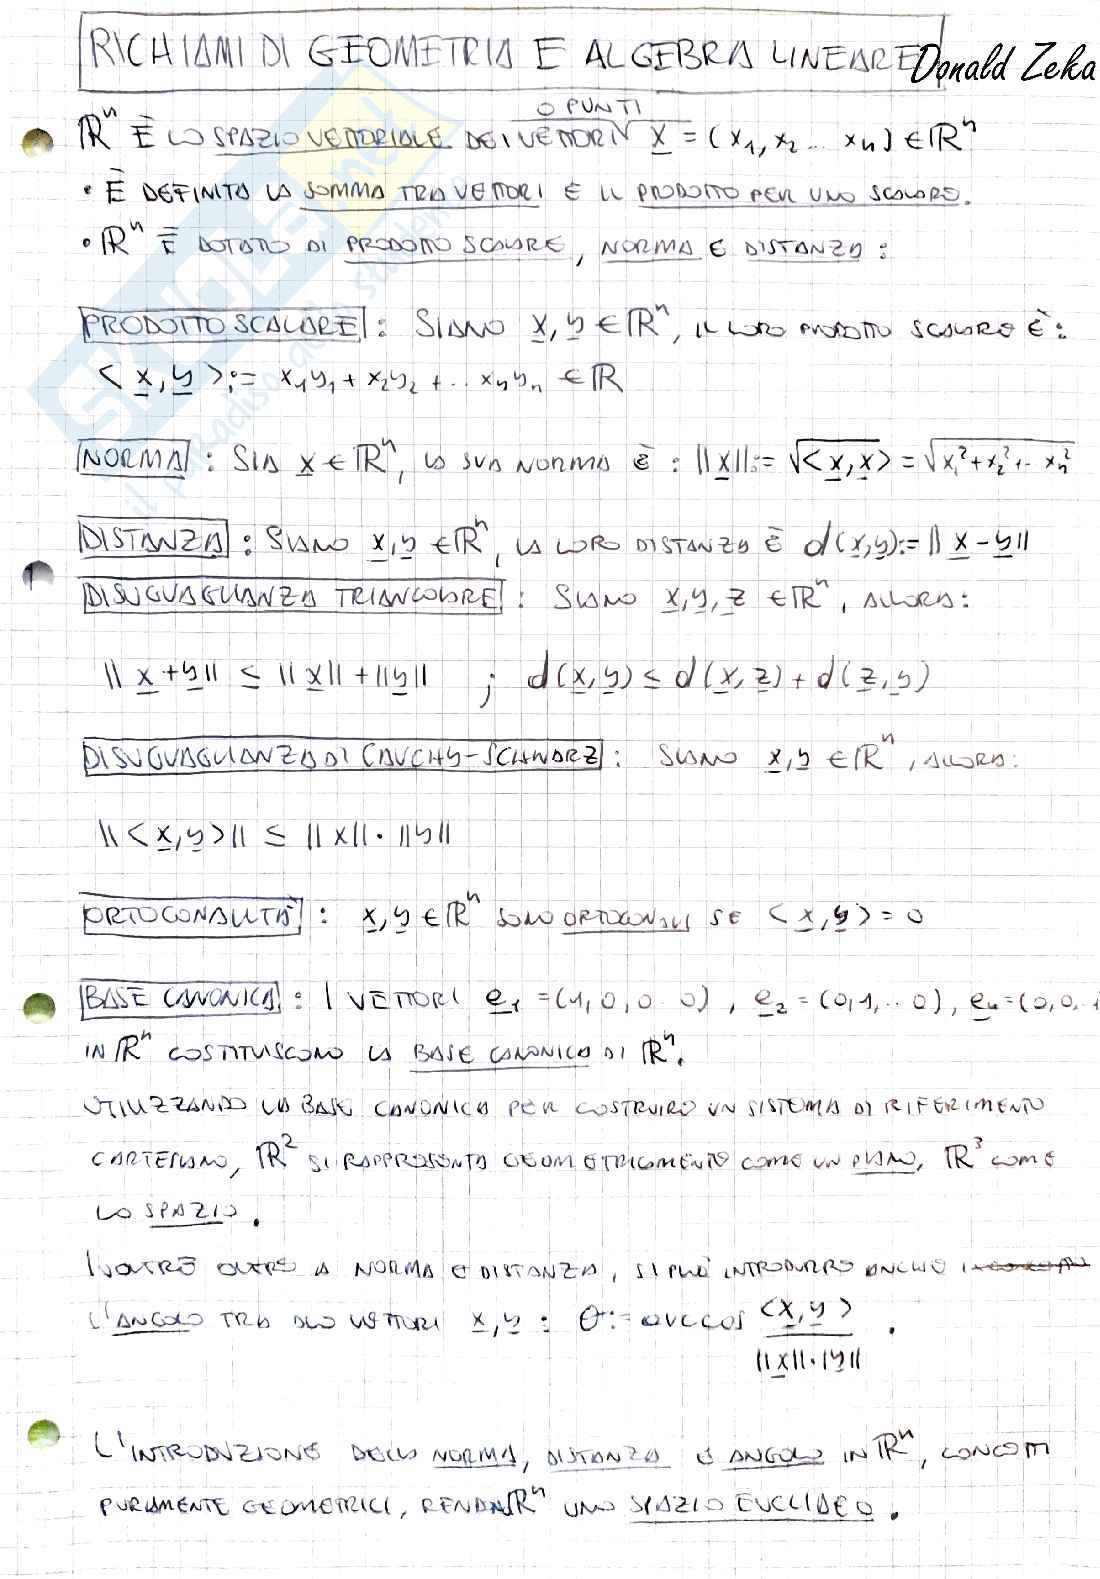 RICHIAMI DI GEOMETRIA E ALGEBRA LINEARE Donald Zeka
O PUNTI
ℝⁿ È LO SPAZIO VETTORIALE DEI VETTORI x = (x₁, x₂ ... xₙ) ∈ ℝⁿ
• È DEFINITA LA SOMMA TRA VETTORI E IL PRODOTTO PER UNO SCALARE.
• ℝⁿ È DOTATO DI PRODOTTO SCALARE, NORMA E DISTANZA :
PRODOTTO SCALARE : SIANO x, y ∈ ℝⁿ, IL LORO PRODOTTO SCALARE È :
< x, y > := x₁y₁ + x₂y₂ + .. xₙyₙ ∈ ℝ
NORMA : SIA x ∈ ℝⁿ, LA SUA NORMA È : ||x|| := √<x, x> = √x₁² + x₂² + .. xₙ²
DISTANZA : SIANO x, y ∈ ℝⁿ, LA LORO DISTANZA È d(x, y) := || x - y ||
DISUGUAGLIANZA TRIANGOLARE : SIANO x, y, z ∈ ℝⁿ, ALLORA :
|| x + y || ≤ || x || + || y || ; d(x, y) ≤ d(x, z) + d(z, y)
DISUGUAGLIANZA DI CAUCHY-SCHWARZ : SIANO x, y ∈ ℝⁿ, ALLORA :
|| < x, y > || ≤ || x || · || y ||
ORTOGONALITÀ : x, y ∈ ℝⁿ SONO ORTOGONALI SE < x, y > = 0
BASE CANONICA : I VETTORI e₁ = (1, 0, 0 .. 0), e₂ = (0, 1, .. 0), eₙ = (0, 0, .. 1
IN ℝⁿ COSTITUISCONO LA BASE CANONICA DI ℝⁿ.
UTILIZZANDO LA BASE CANONICA PER COSTRUIRE UN SISTEMA DI RIFERIMENTO
CARTESIANO, ℝ² SI RAPPRESENTA GEOMETRICAMENTE COME UN PIANO, ℝ³ COME
LO SPAZIO.
INOLTRE OLTRE A NORMA E DISTANZA, SI PUÒ INTRODURRE ANCHE
L'ANGOLO TRA DUE VETTORI x, y : θ := arccos <x, y>
||x|| · |y||
L'INTRODUZIONE DELLA NORMA, DISTANZA E ANGOLO IN ℝⁿ, CONCETTI
PURAMENTE GEOMETRICI, RENDA ℝⁿ UNO SPAZIO EUCLIDEO.